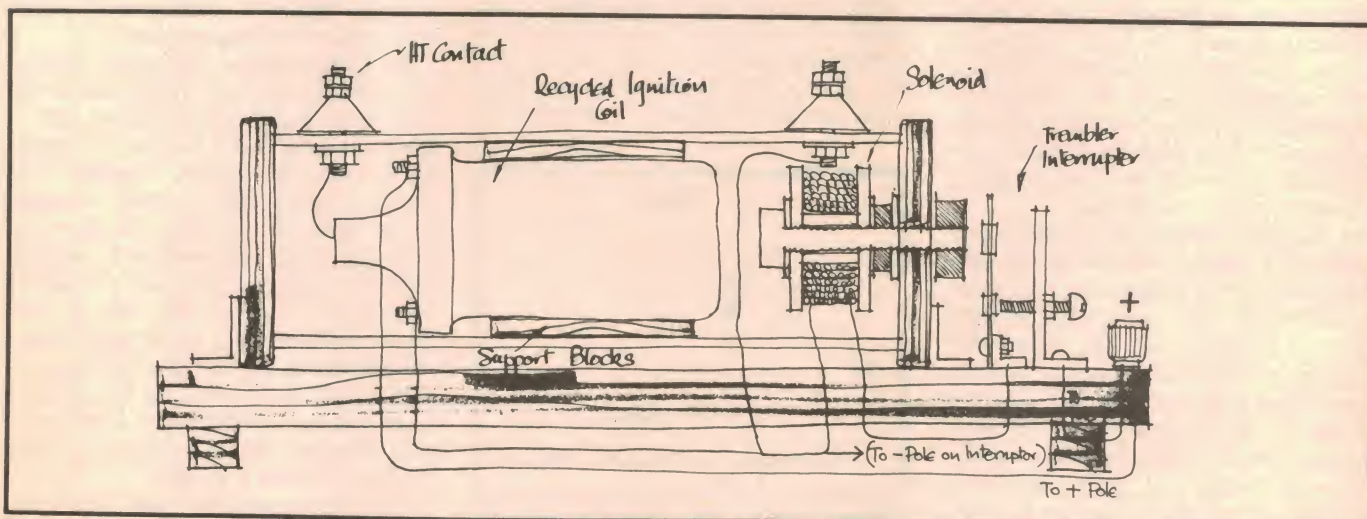 HT Contact
Recycled Ignition
Coil
Solenoid
Trembler
Interrupter
+
Support Blocks
(To - Pole on Interruptor)
To + Pole